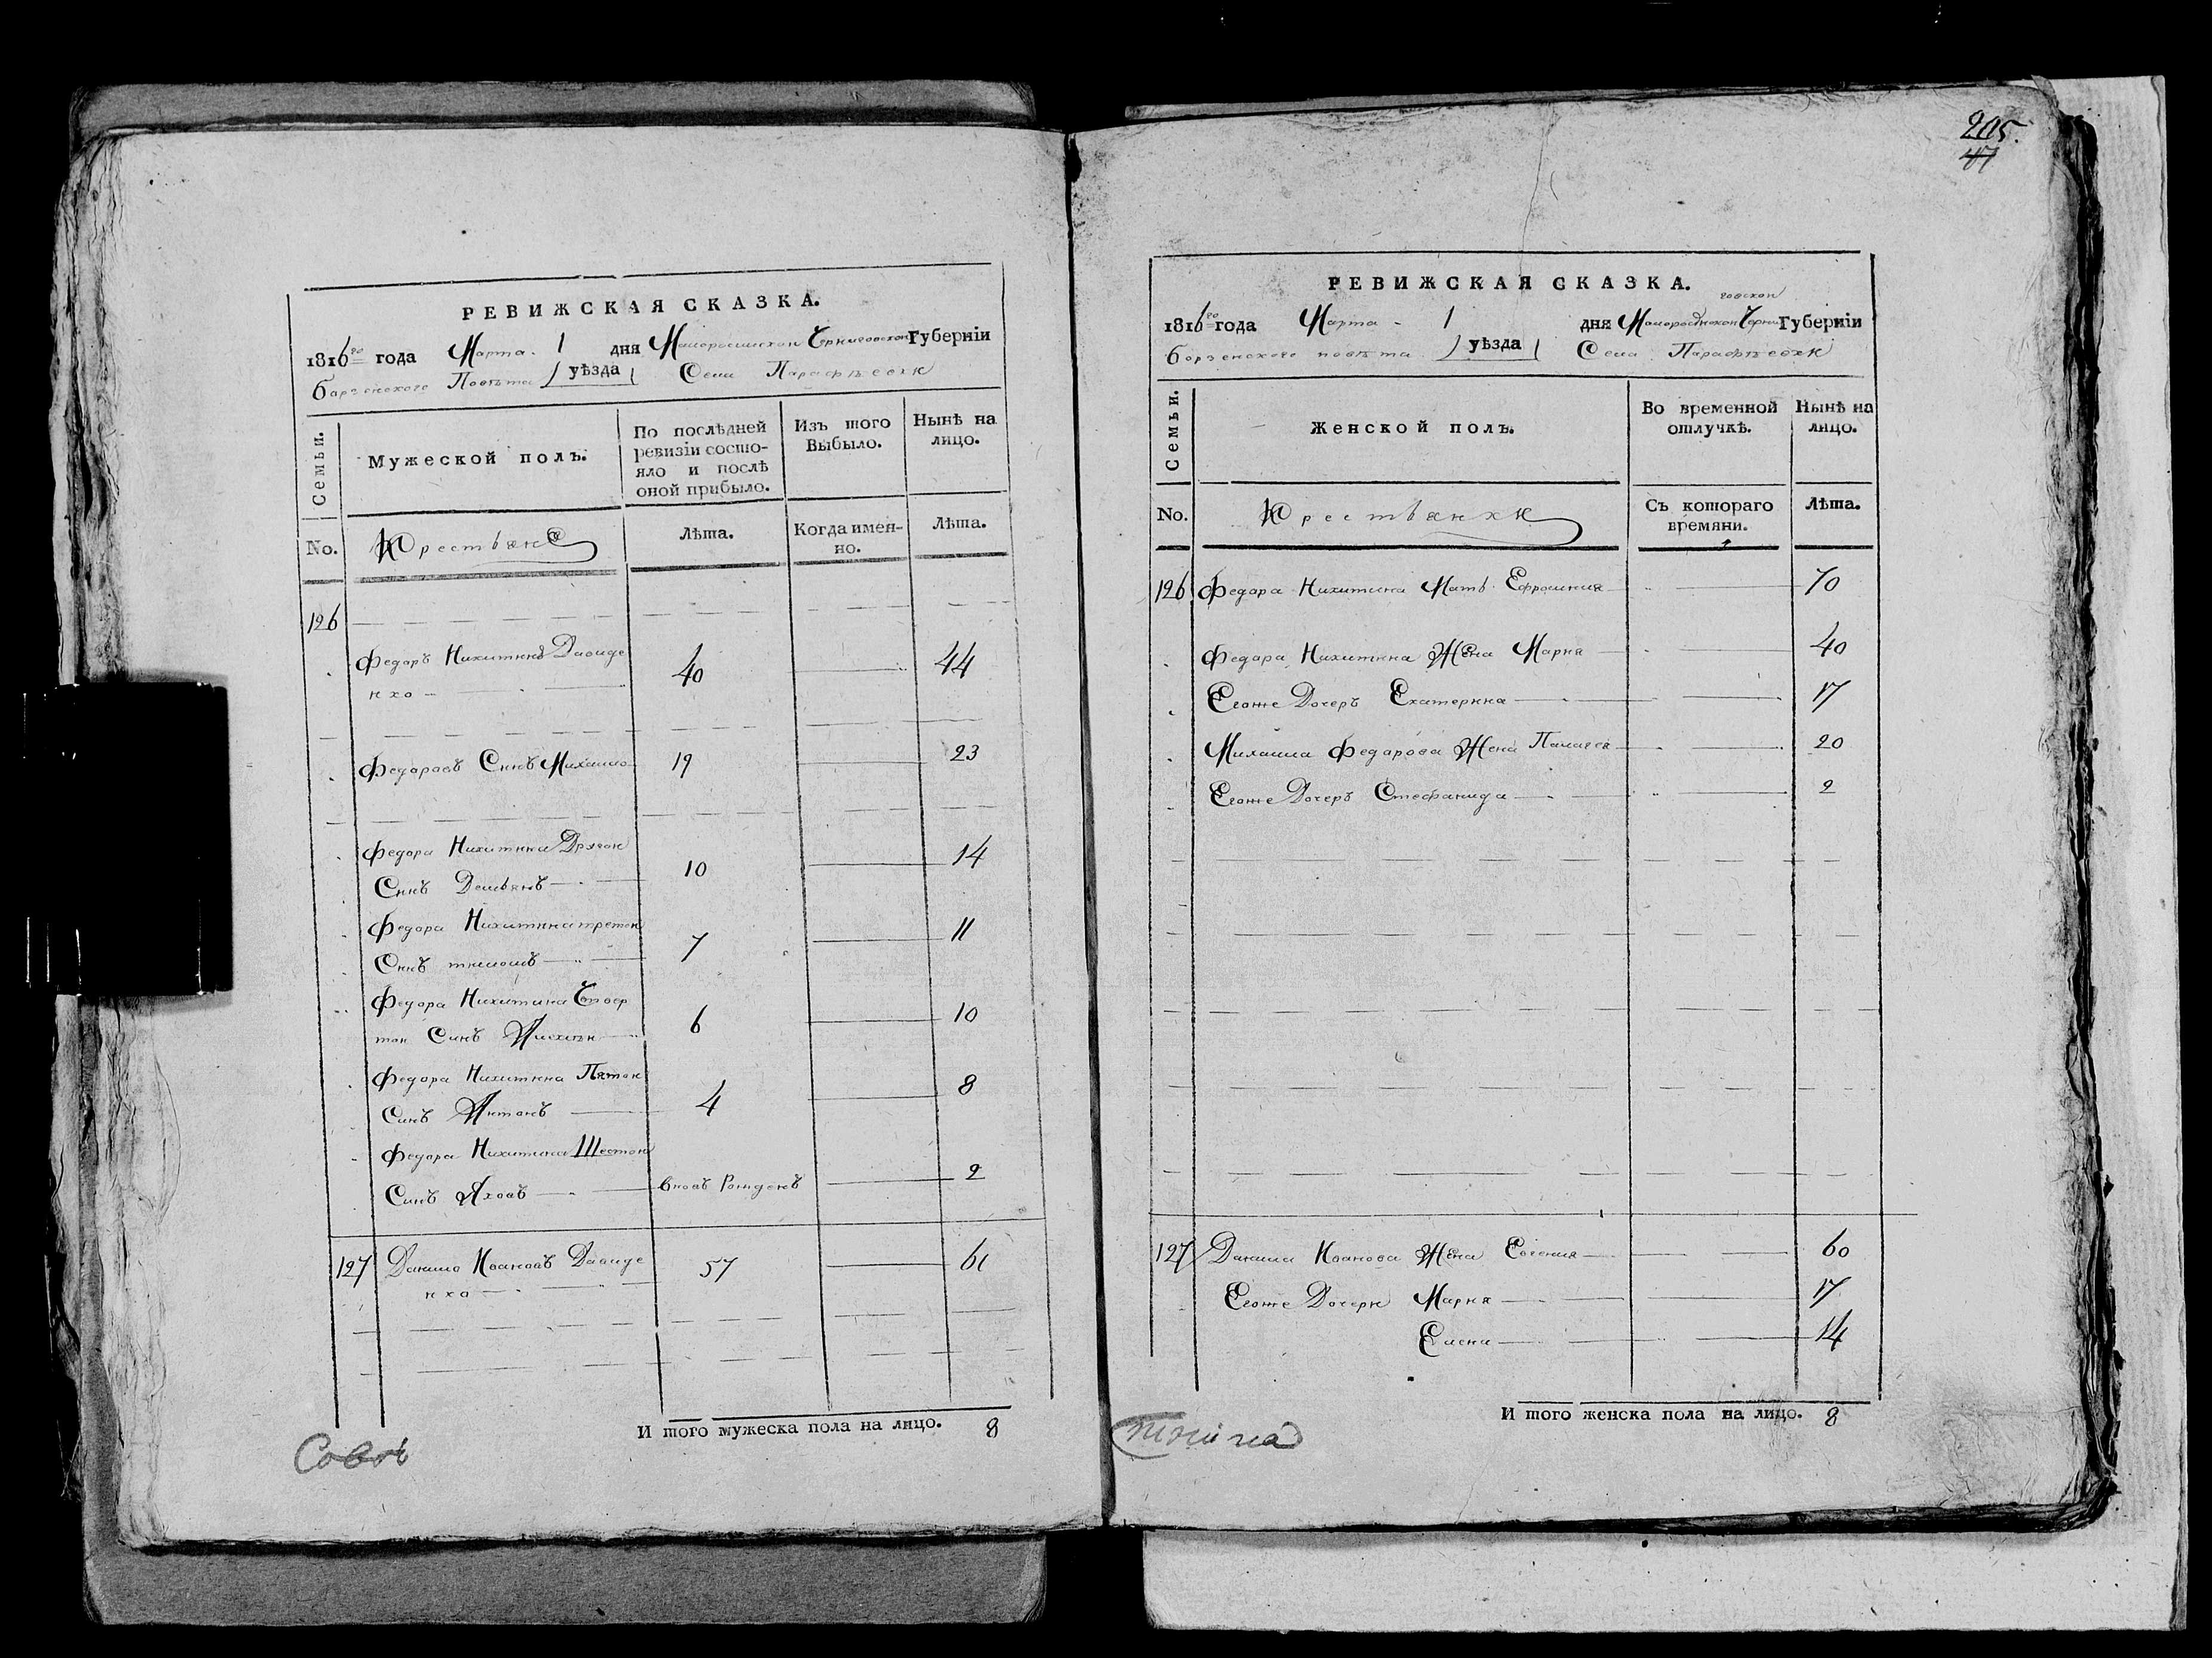 РЕВИЖСКАЯ СКАЗКА.
1816го года Марта 1 дня Малоросийской Черниговской Губерніи
Борзенского Повѣта уѣзда Села Парафѣевки
Семьи.
Мужеской полъ.
По послѣдней
ревизіи состо-
яло и послѣ
оной прибыло.
Изъ того
Выбыло.
Нынѣ на
лицо.
No.
Крестьяне
Лѣта.
Когда имен-
но.
Лѣта.
126
Федоръ Никитинъ Давиде 40 44
нко
Федоровъ Синъ Михайло 19 23
Федора Никитина Другой
Синъ Демьянъ 10 14
Федора Никитина третой
Синъ 7 11
Федора Никитина Четвер
той Синъ 6 10
Федора Никитина Пятой
Синъ Антонъ 4 8
Федора Никитина Шестой
Синъ Яковъ вновъ Рожденъ 2
127 Данило Ивановъ Давиде 57 61
нко
И того мужеска пола на лицо. 8
205.
47
РЕВИЖСКАЯ СКАЗКА.
говской
1816го года Марта 1 дня Малоросийской Черни Губерніи
Борзенского повѣта уѣзда Села Парафѣевки
Семьи.
Женской полъ.
Во временной
отлучкѣ.
Нынѣ на
лицо.
No.
Крестьянки
Съ котораго
времяни.
Лѣта.
126 Федора Никитина Мать Ефросиния 70
Федора Никитина Жена Мария 40
Егоже Дочеръ Екатерина 17
Михаила Федорова Жена Палагея 20
Егоже Дочеръ Стефанида 2
127 Данила Иванова Жена Евгения 60
Егоже Дочери Мария 17
Елена 14
И того женска пола на лицо. 8